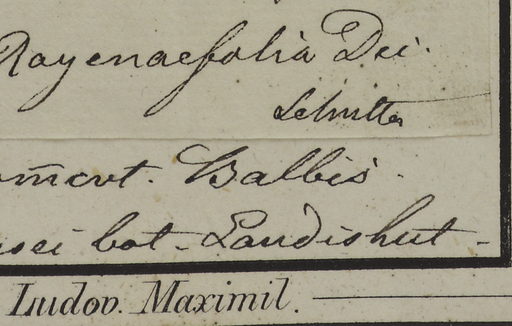 Rayenaefolia Dec.
Schultes
Balbis.
bot. Landishut.
Ludov. Maximil.